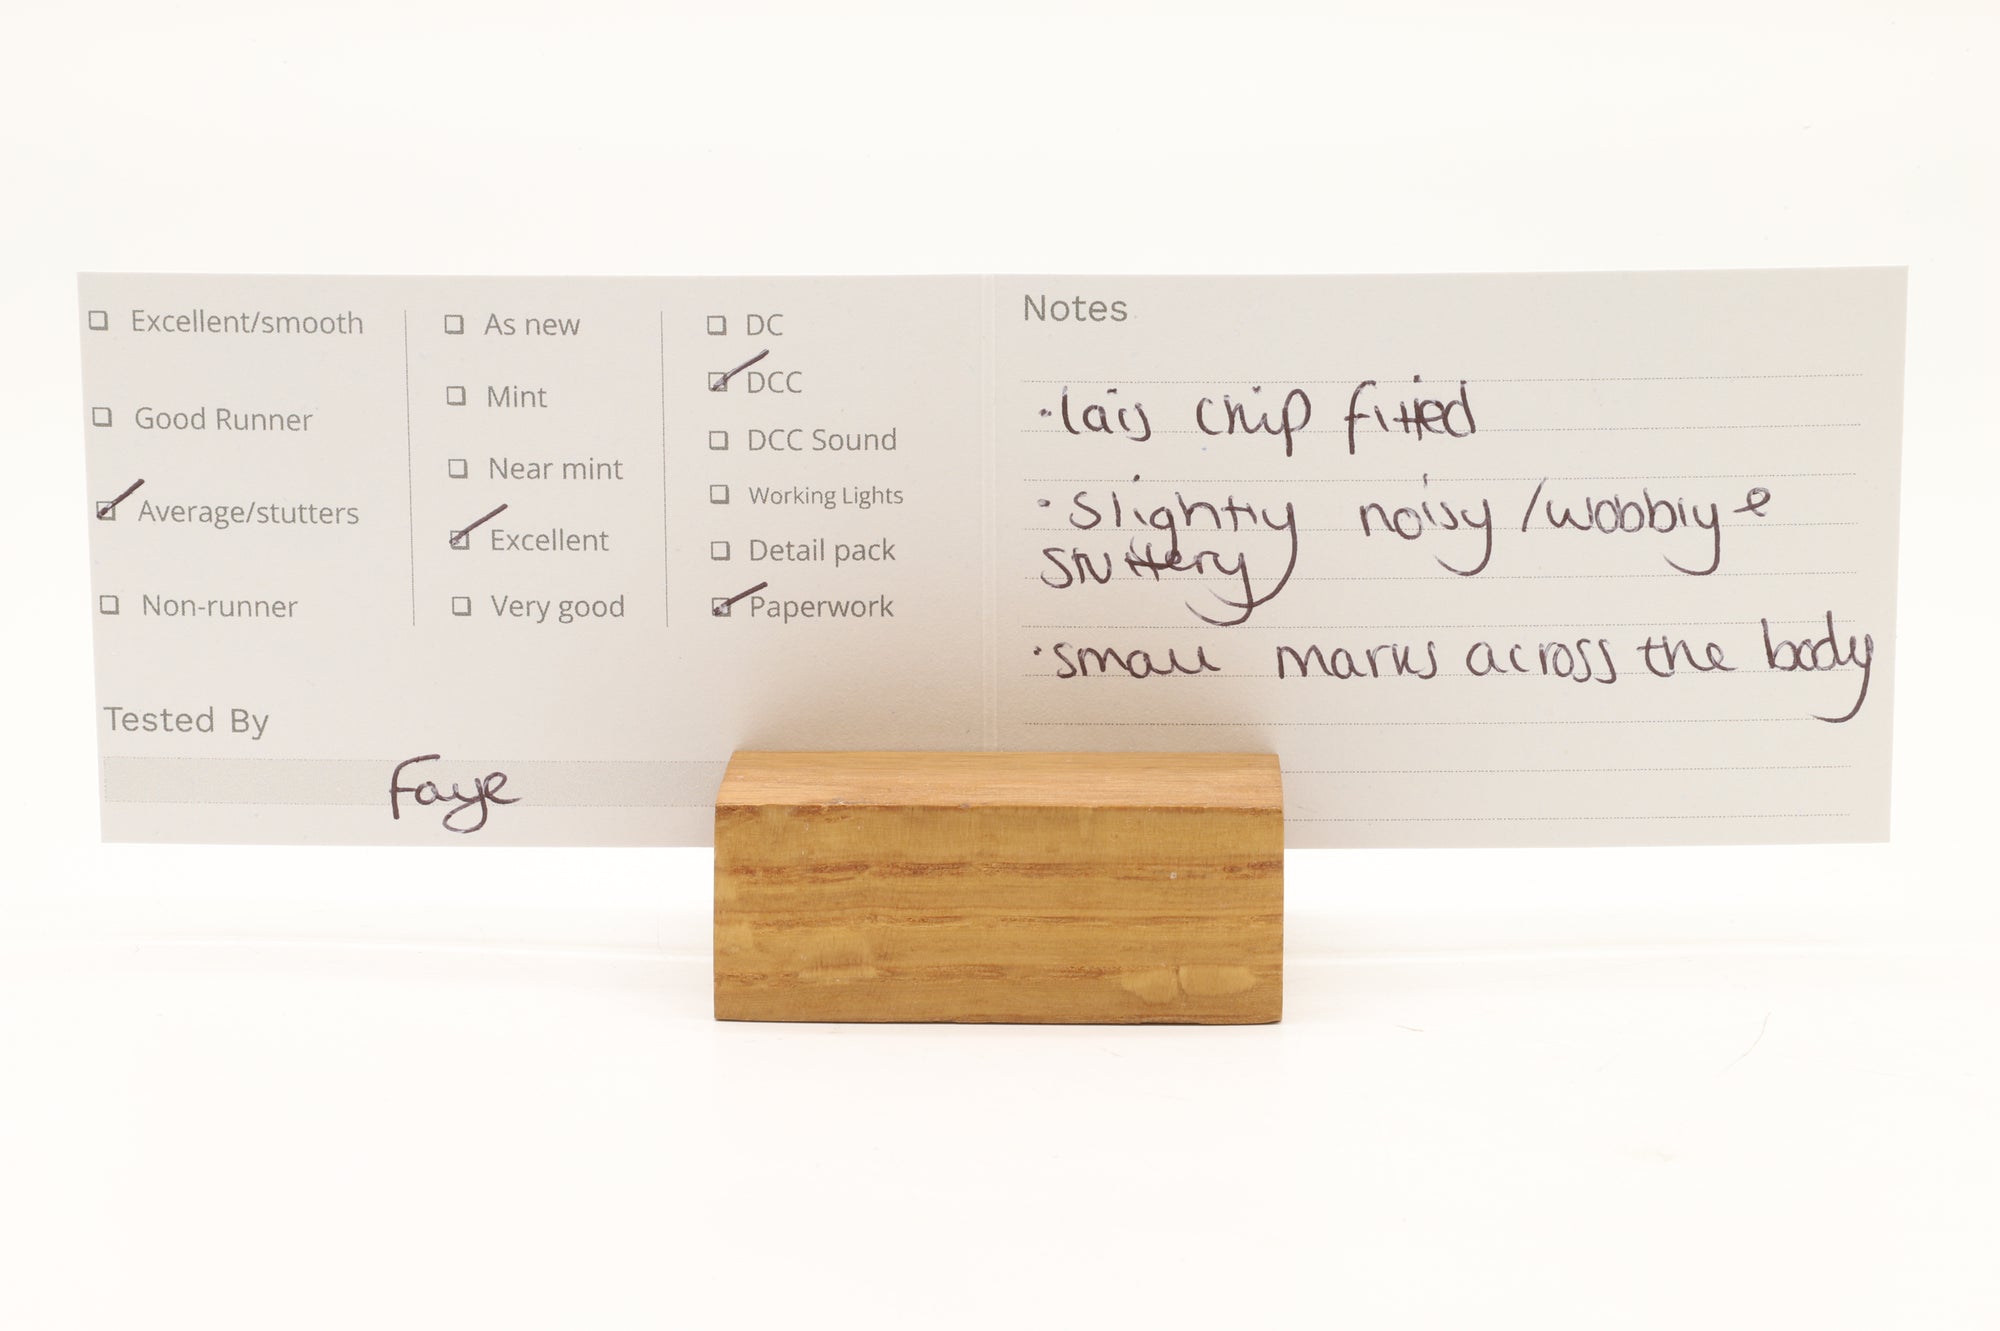 Excellent/smooth
Good Runner
Average/stutters
Non-runner
As new
Mint
Near mint
Excellent
Very good
DC
DCC
DCC Sound
Working Lights
Detail pack
Paperwork
Tested By
Faye
Notes
·lais chip fitted
·slightly noisy/wobbly &
stuttery
·small marks across the body